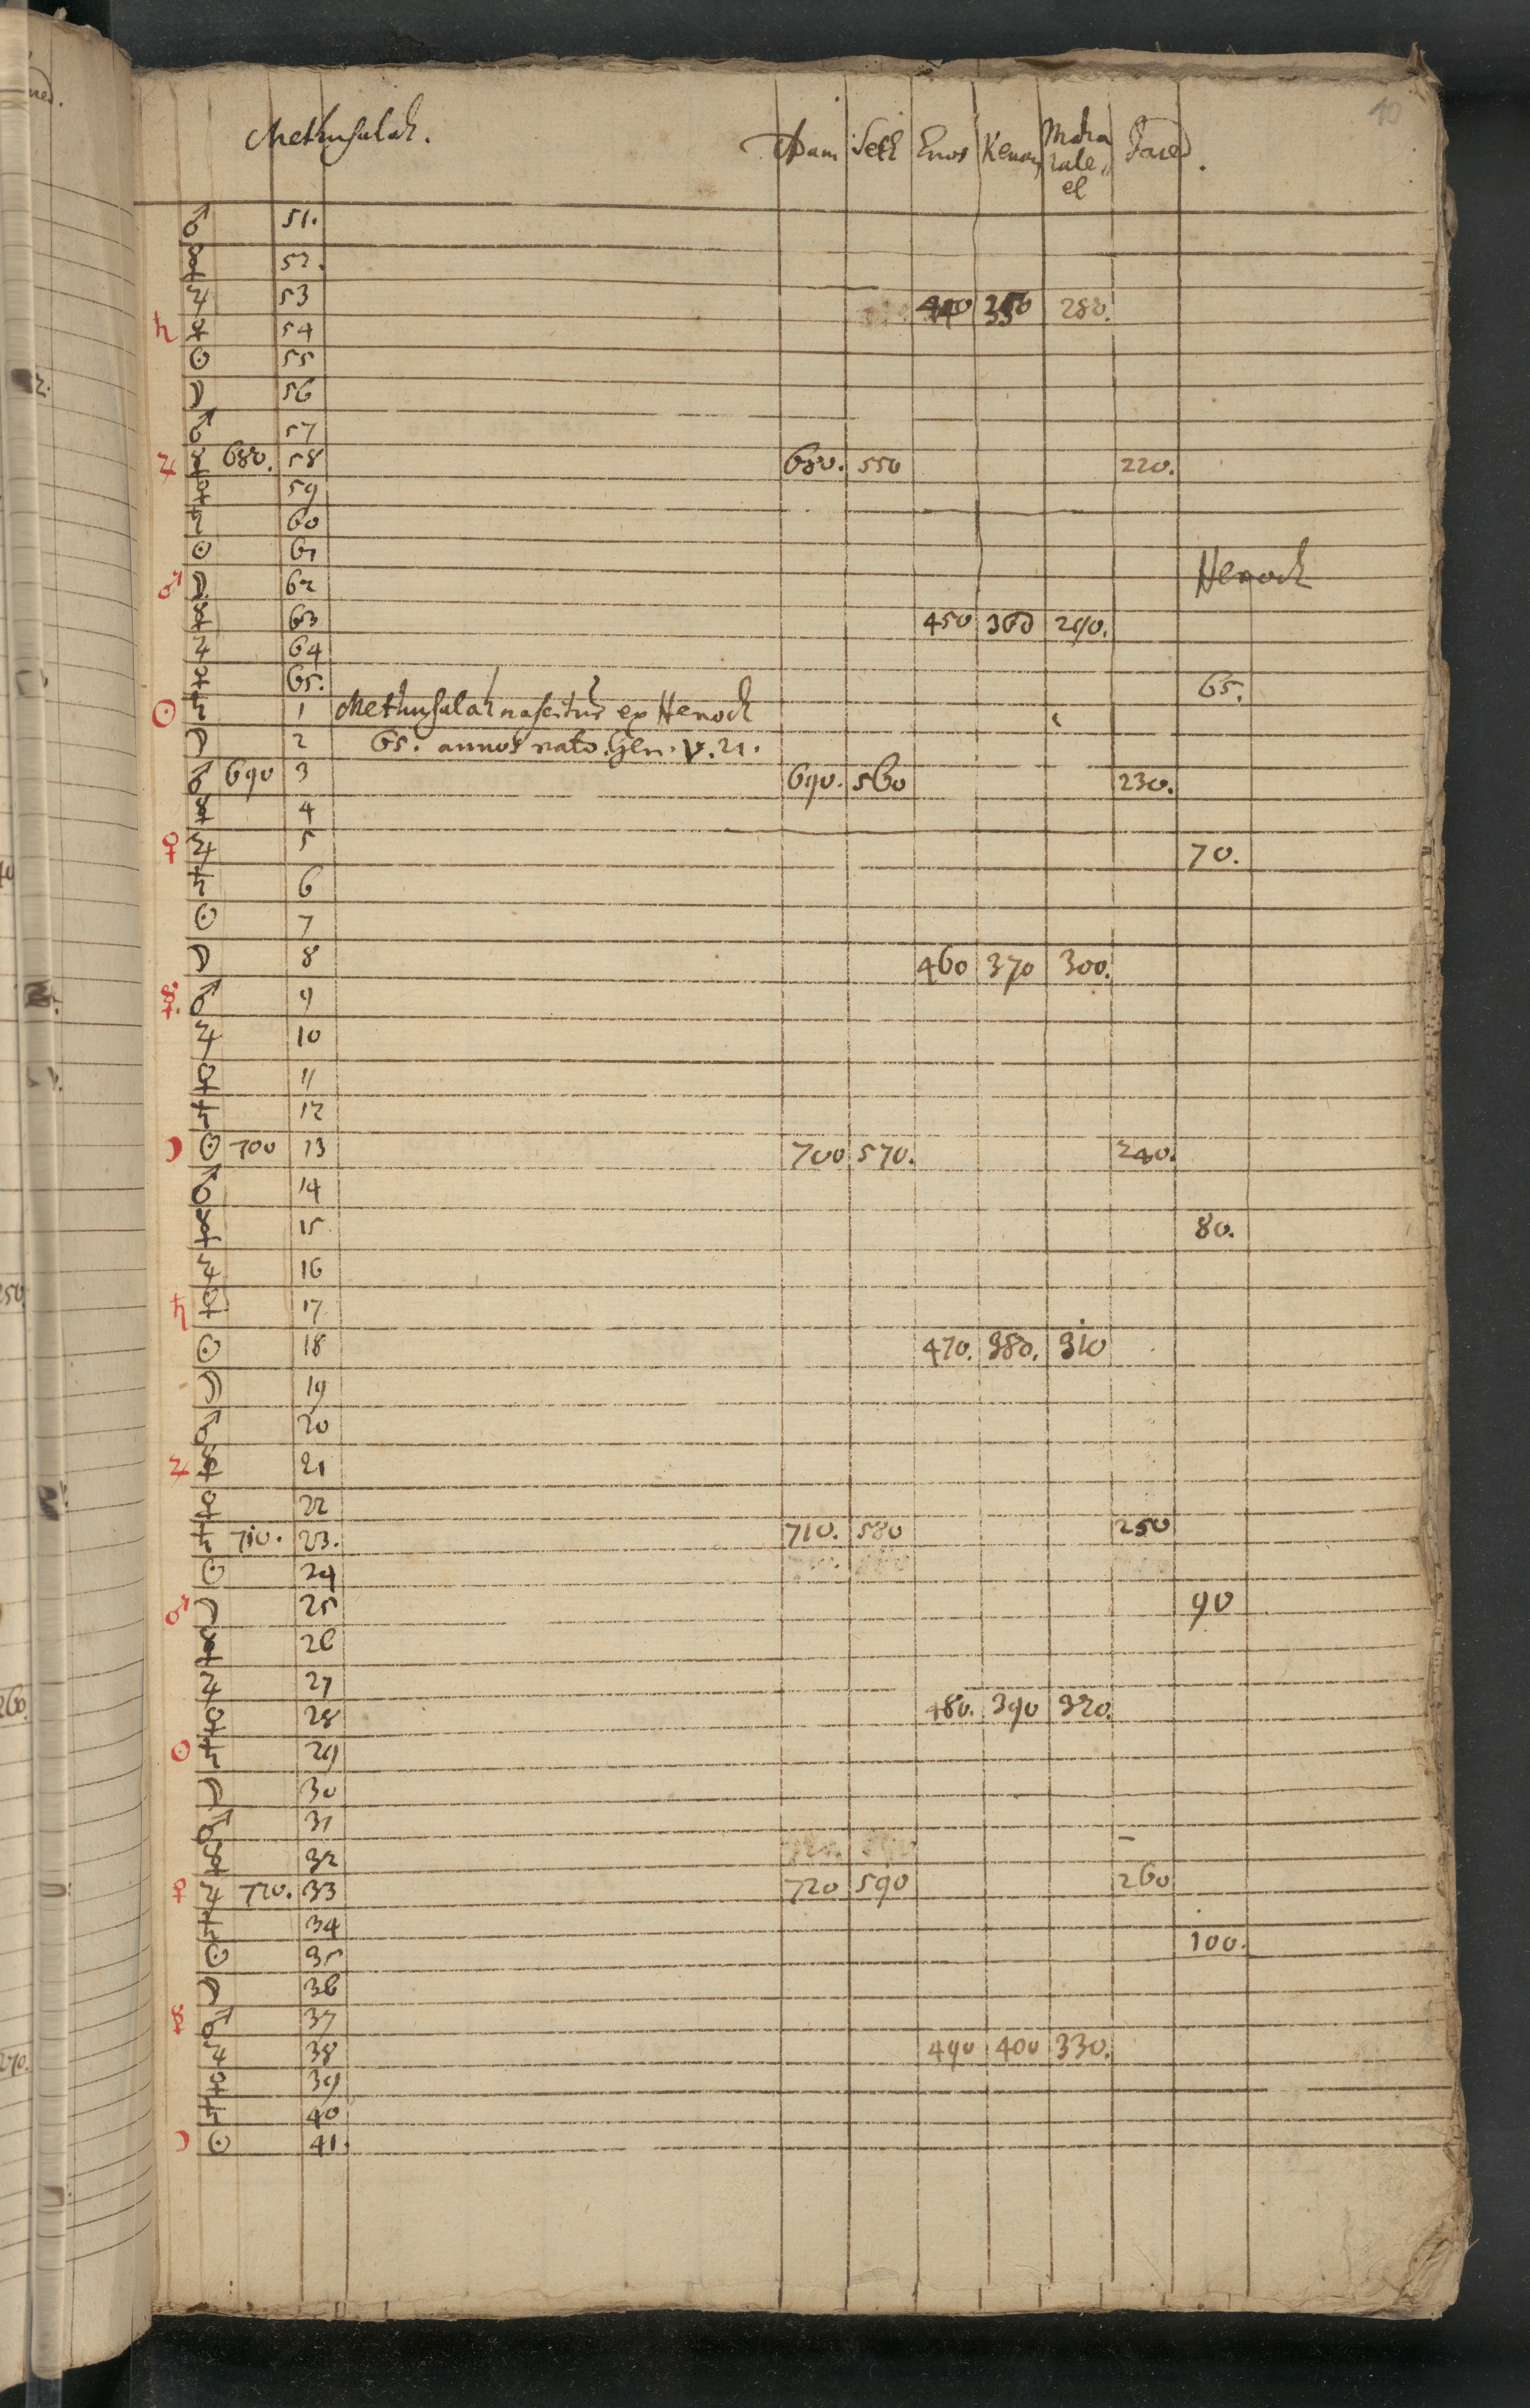 10
Methusalah. Adam Seth Enos Kenan Maha Jared.
lale,,
el
♂ 51.
☿ 52.
♃ 53 440 350 280.
♄ ♀ 54
☉ 55
☽ 56
♂ 57
♃ ☿ 680. 58 680. 550 220.
♀ 59
♄ 60
☉ 61
♂ ☽ 62 Henoch
☿ 63 450 360 290.
♃ 64
♀ 65. 65.
☉ ♄ 1 Methusalah nascitur ex Henoch
☽ 2 65. annos nato. Gen. V. 21.
♂ 690 3 690. 560 230.
☿ 4
♀ ♃ 5 70.
♄ 6
☉ 7
☽ 8 460 370 300.
☿. ♂ 9
♃ 10
♀ 11
♄ 12
☽ ☉ 700 13 700 570. 240.
♂ 14
☿ 15 80.
♃ 16
♄ ♀ 17
☉ 18 470. 380. 310
☽ 19
♂ 20
♃ ☿ 21
♀ 22
♄ 710. 23. 710. 580 250
☉ 24
♂ ☽ 25 90
☿ 26
♃ 27
♀ 28 480. 390 320.
☉ ♄ 29
☽ 30
♂ 31
☿ 32
♀ ♃ 720. 33 720 590 260
♄ 34
☉ 35 100.
☽ 36
☿ ♂ 37
♃ 38 490 400 330.
♀ 39
♄ 40
☽ ☉ 41.